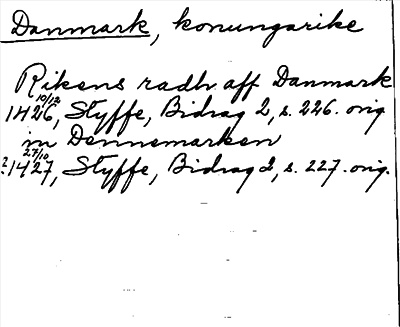 Danmark, konungarike
Rikens radh aff Danmark
1426 10/12, Styffe, Bidrag 2, s. 226. orig.
in Dennemarken
?1427 27/10, Styffe, Bidrag 2, s. 227. orig.